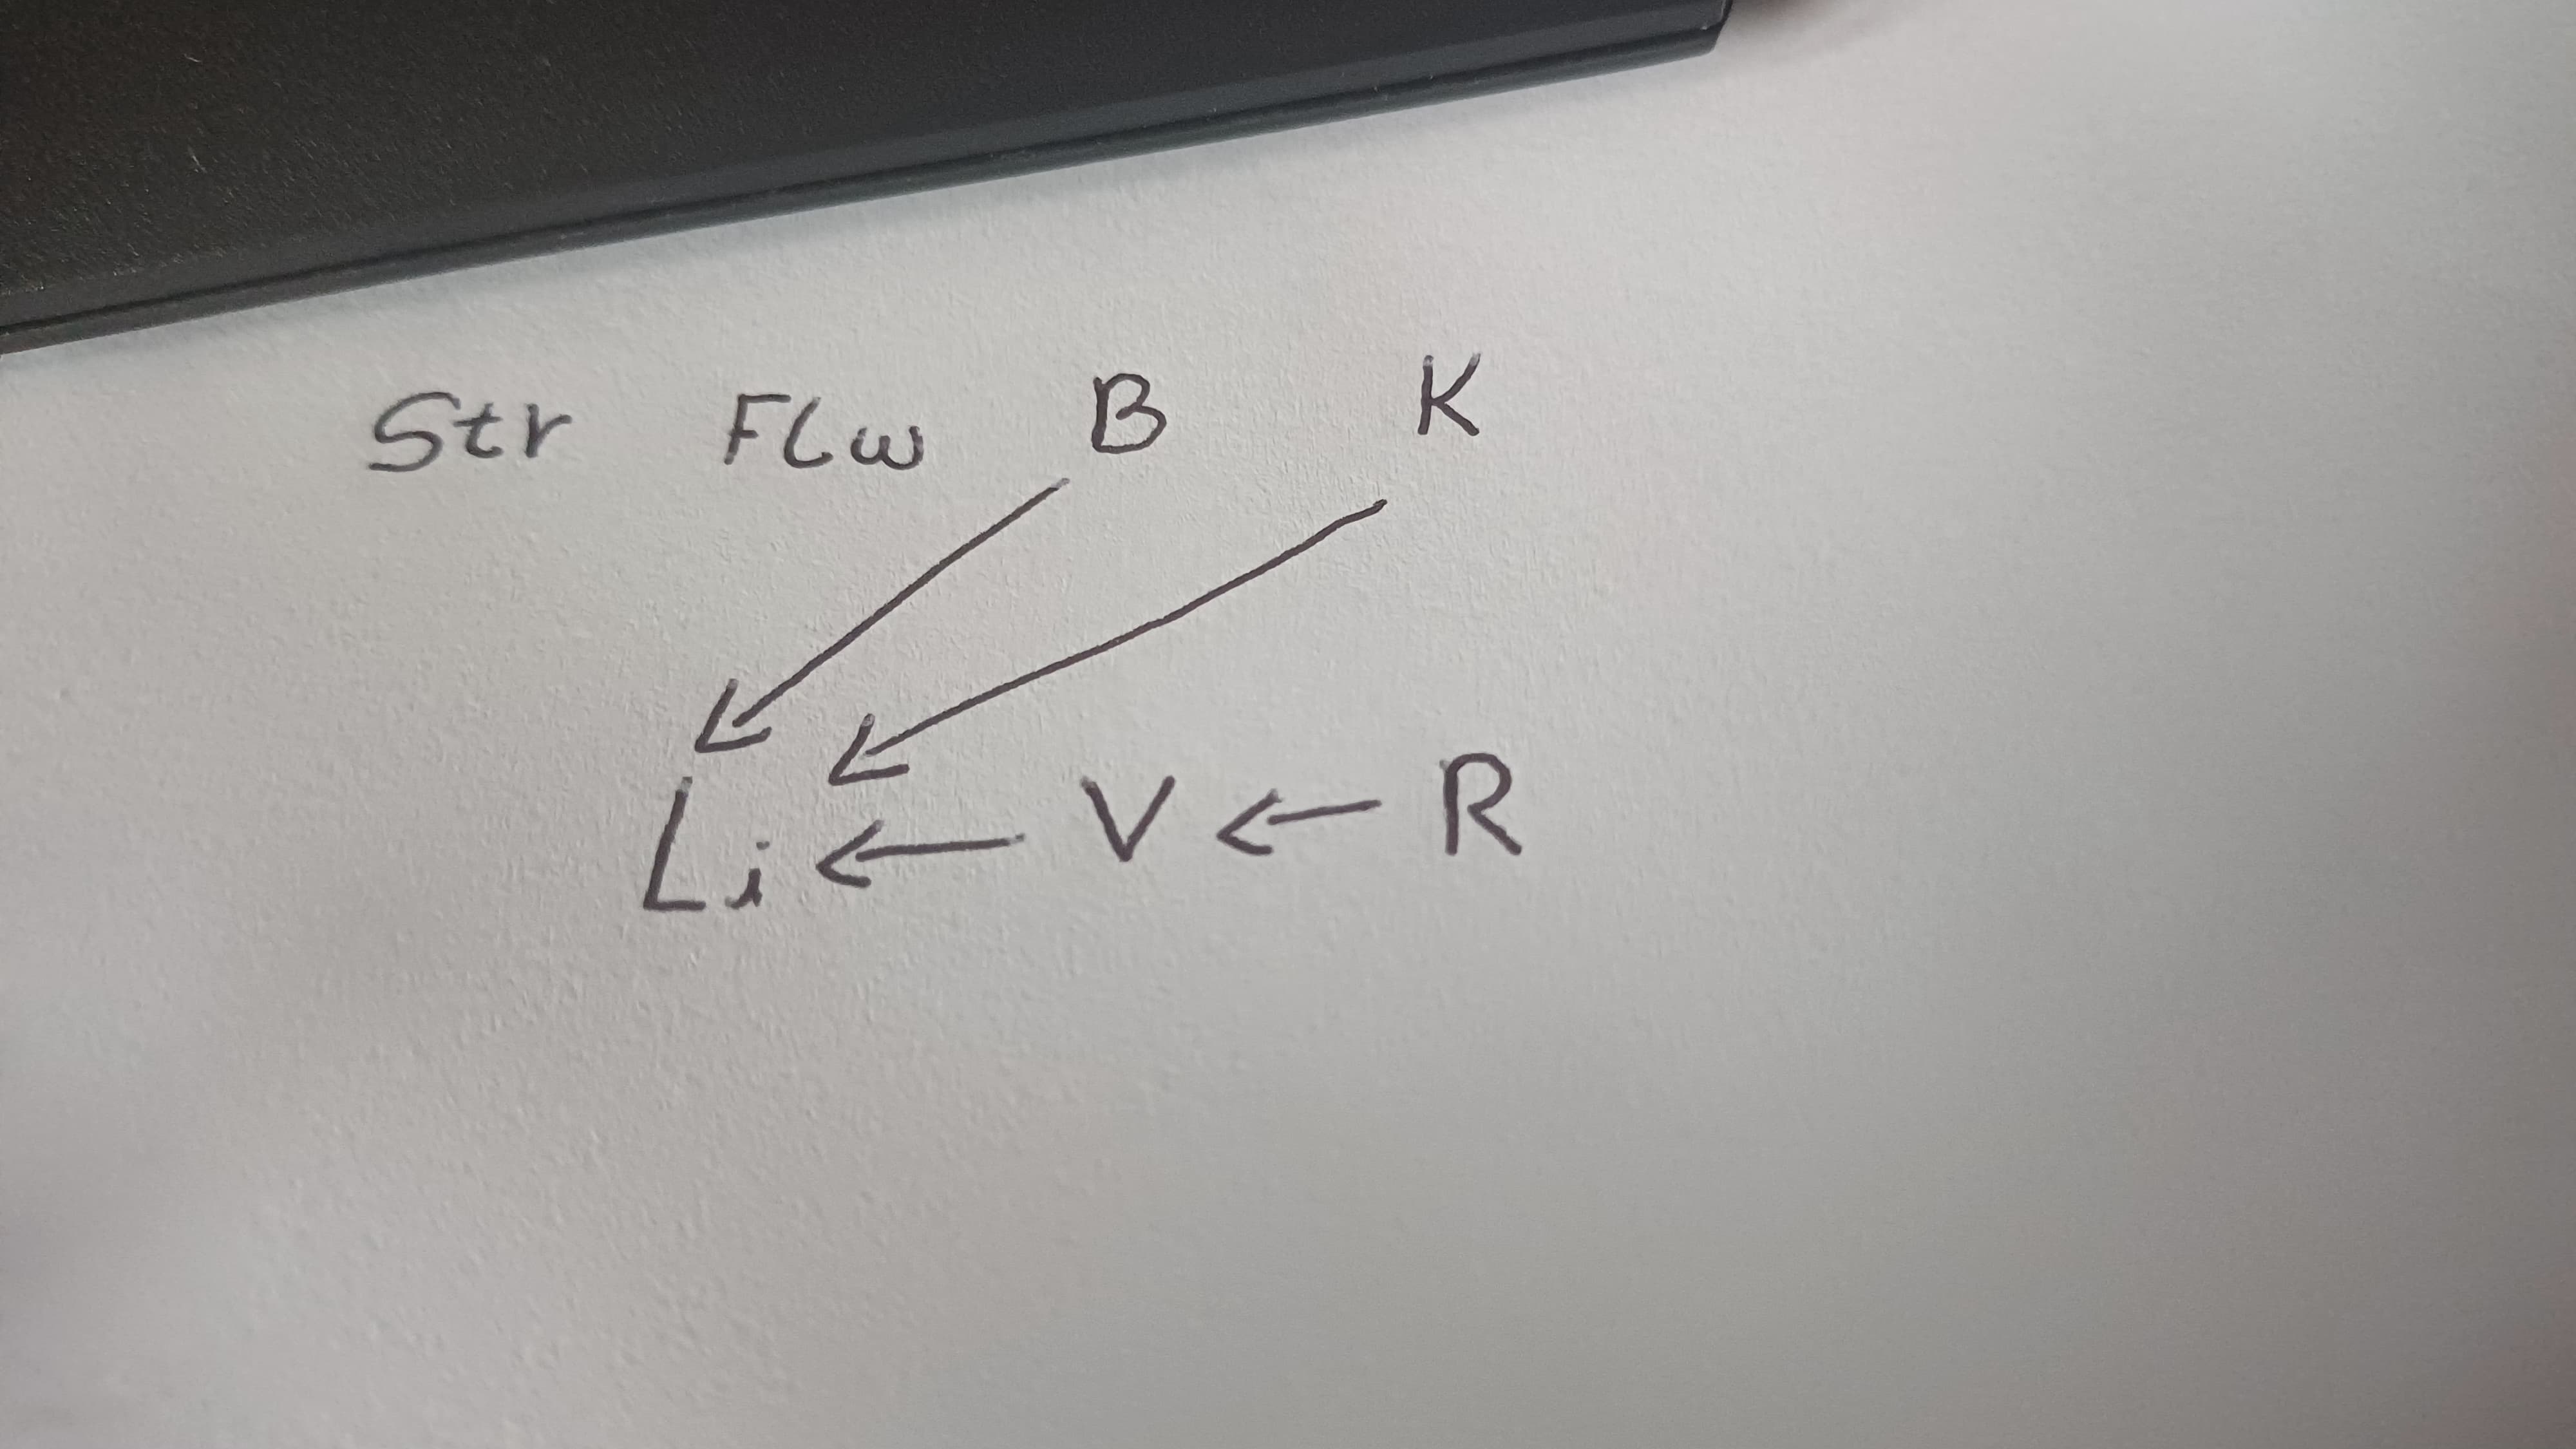 Str Flw B K
Li ← V ← R